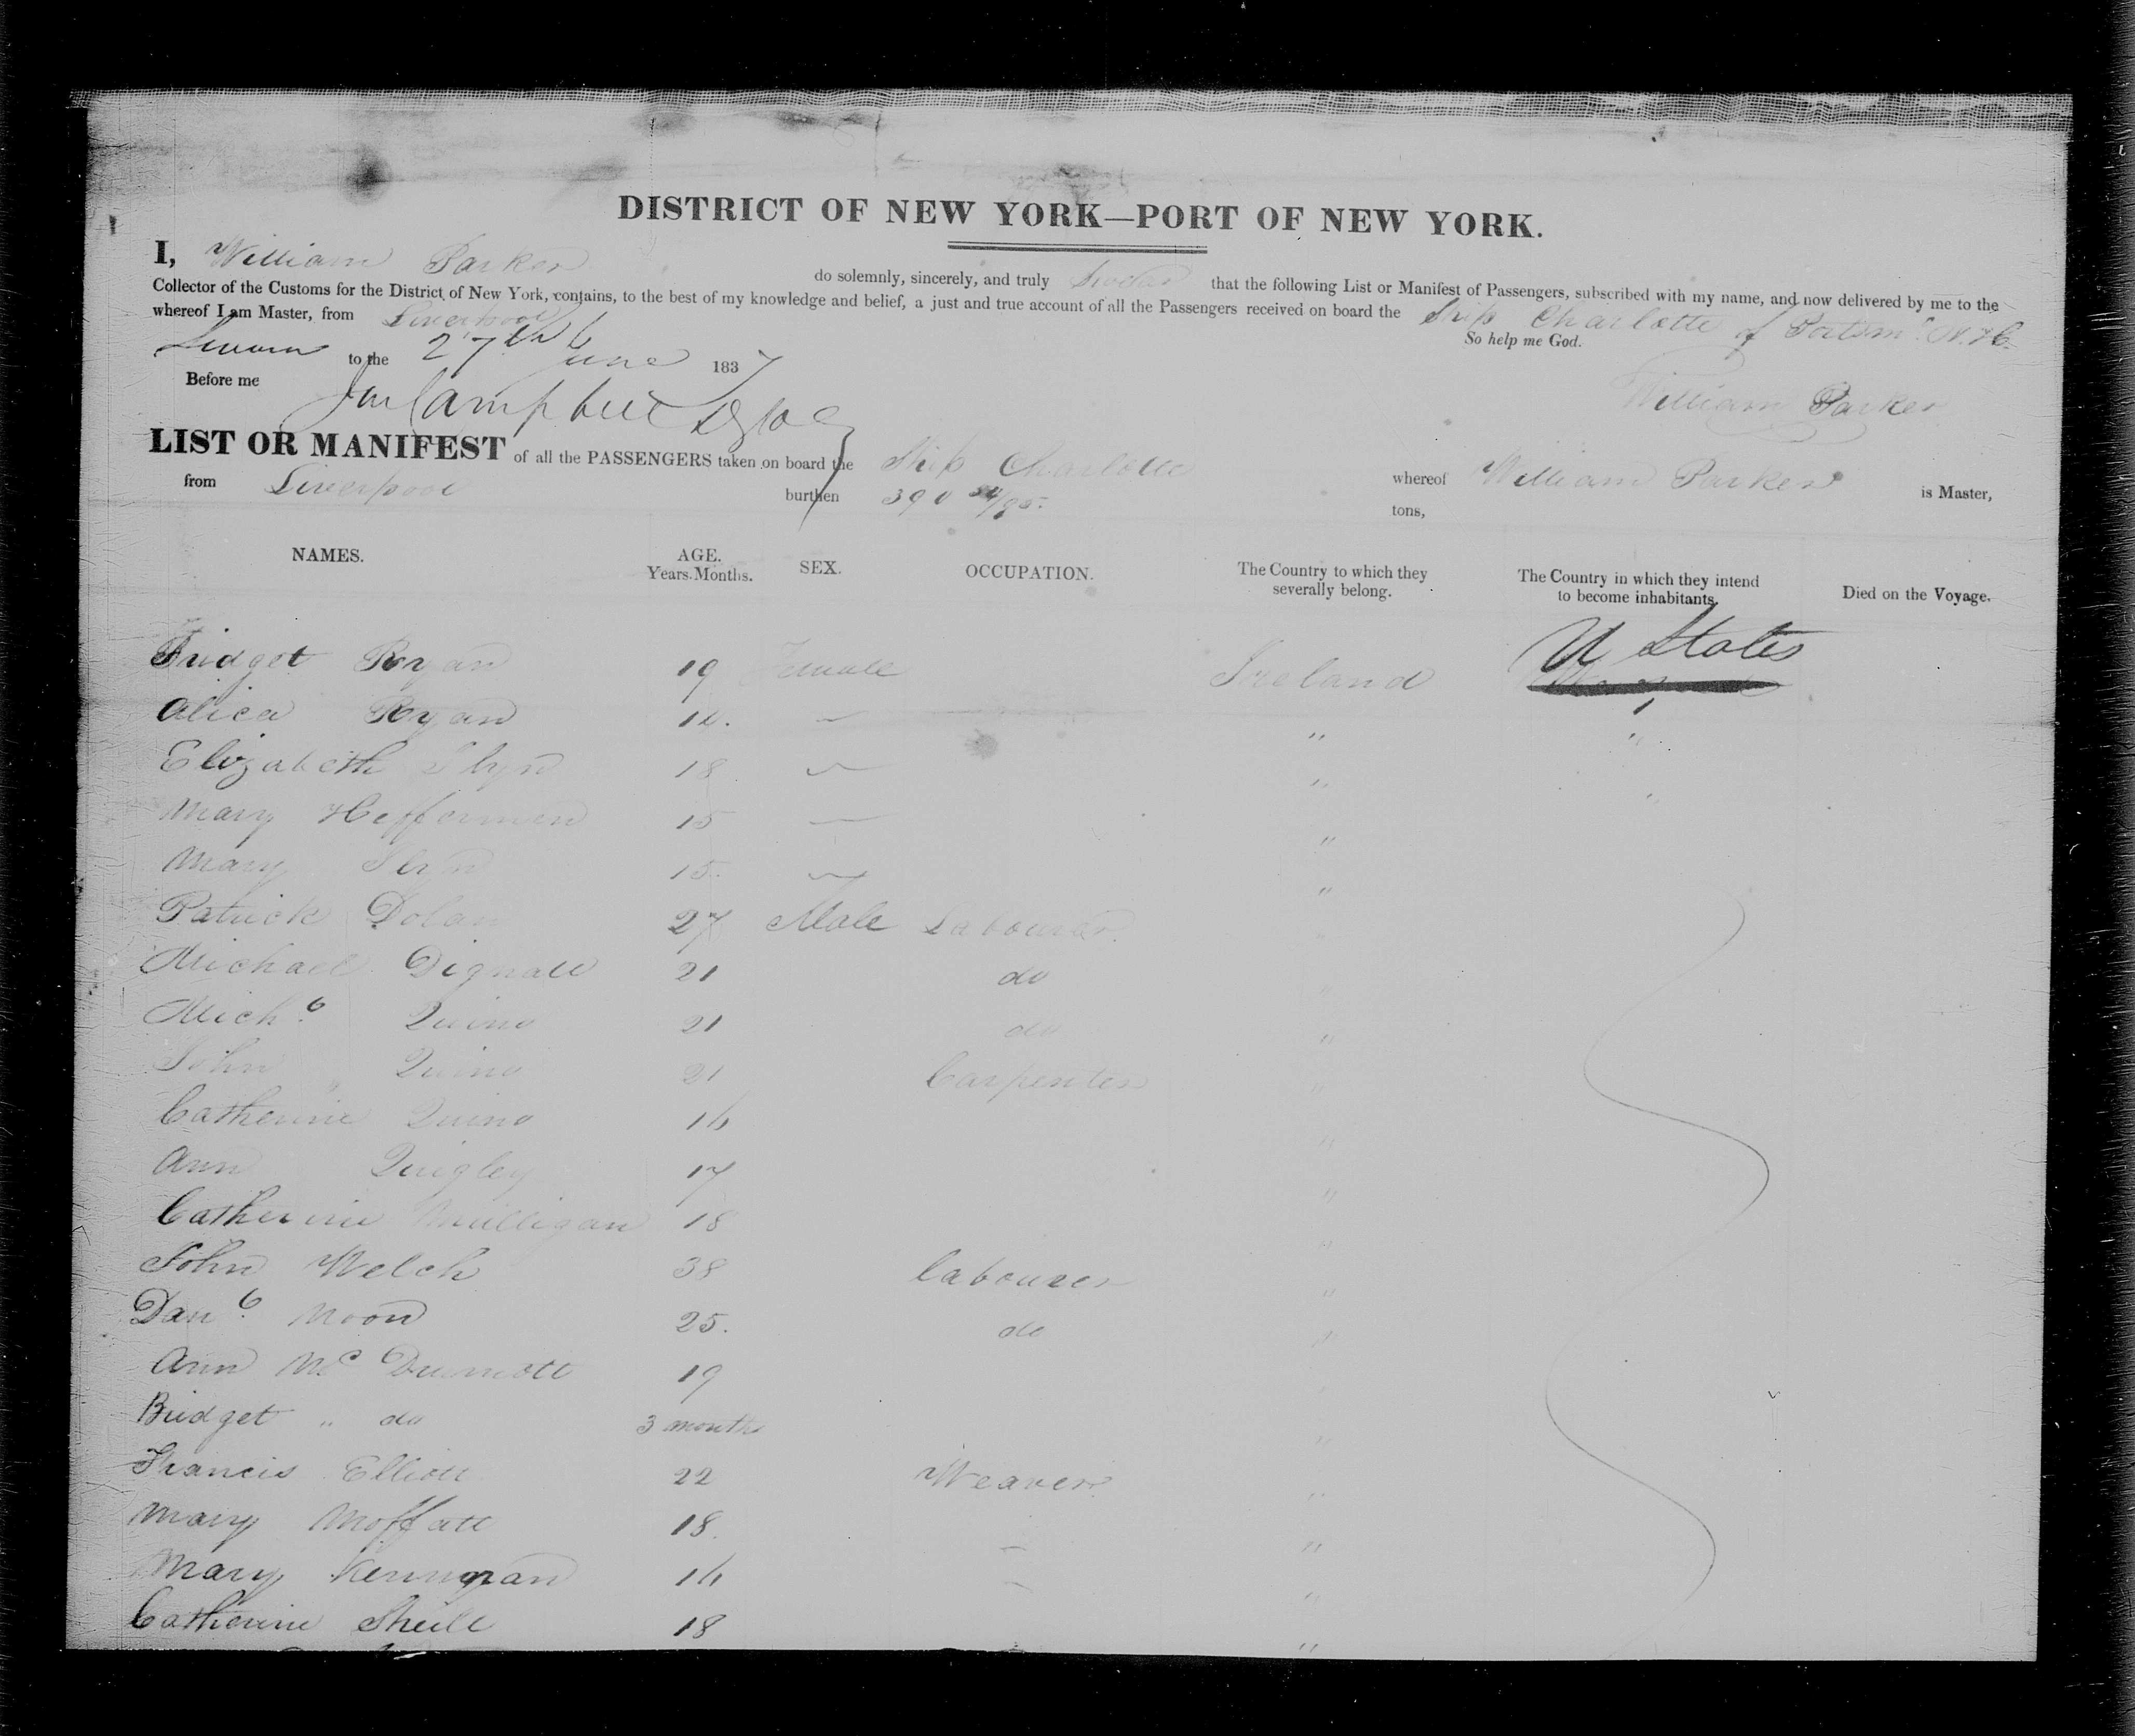 DISTRICT OF NEW YORK—PORT OF NEW YORK.
I, William Parker do solemnly, sincerely, and truly Swear that the following List or Manifest of Passengers, subscribed with my name, and now delivered by me to the
Collector of the Customs for the District of New York, contains, to the best of my knowledge and belief, a just and true account of all the Passengers received on board the Ship Charlotte of Portsmo. N.H.
whereof I am Master, from Liverpool So help me God.
Sworn to the 27th June 1837
William Parker
Before me
LIST OR MANIFEST of all the PASSENGERS taken on board the Ship Charlotte whereof William Parker is Master,
from Liverpool burthen 390 tons,
NAMES. AGE. Years. Months. SEX. OCCUPATION. The Country to which they severally belong. The Country in which they intend to become inhabitants. Died on the Voyage.
Bridget Ryan 19 Female Ireland U States
Alica Ryan 14. " "
Elizabeth 18 " "
Mary Heffernnen 15 "
Mary 15. "
Patrick Dolan 27 Male Labourer "
Michael Dignall 21 do "
Michl. Quino 21 do "
John Quino 21 Carpenter "
Catherine Quino 16 "
Ann Quigley 17 "
Catherine Mulligan 18 "
John Welch 38 labourer "
Danl. Moon 25. do "
Ann McDurmott 19 "
Bridget " do 3 months "
Francis Elliott 22 Weaver "
Mary Moffatt 18. "
Mary 16 "
Catherine Sheill 18 "